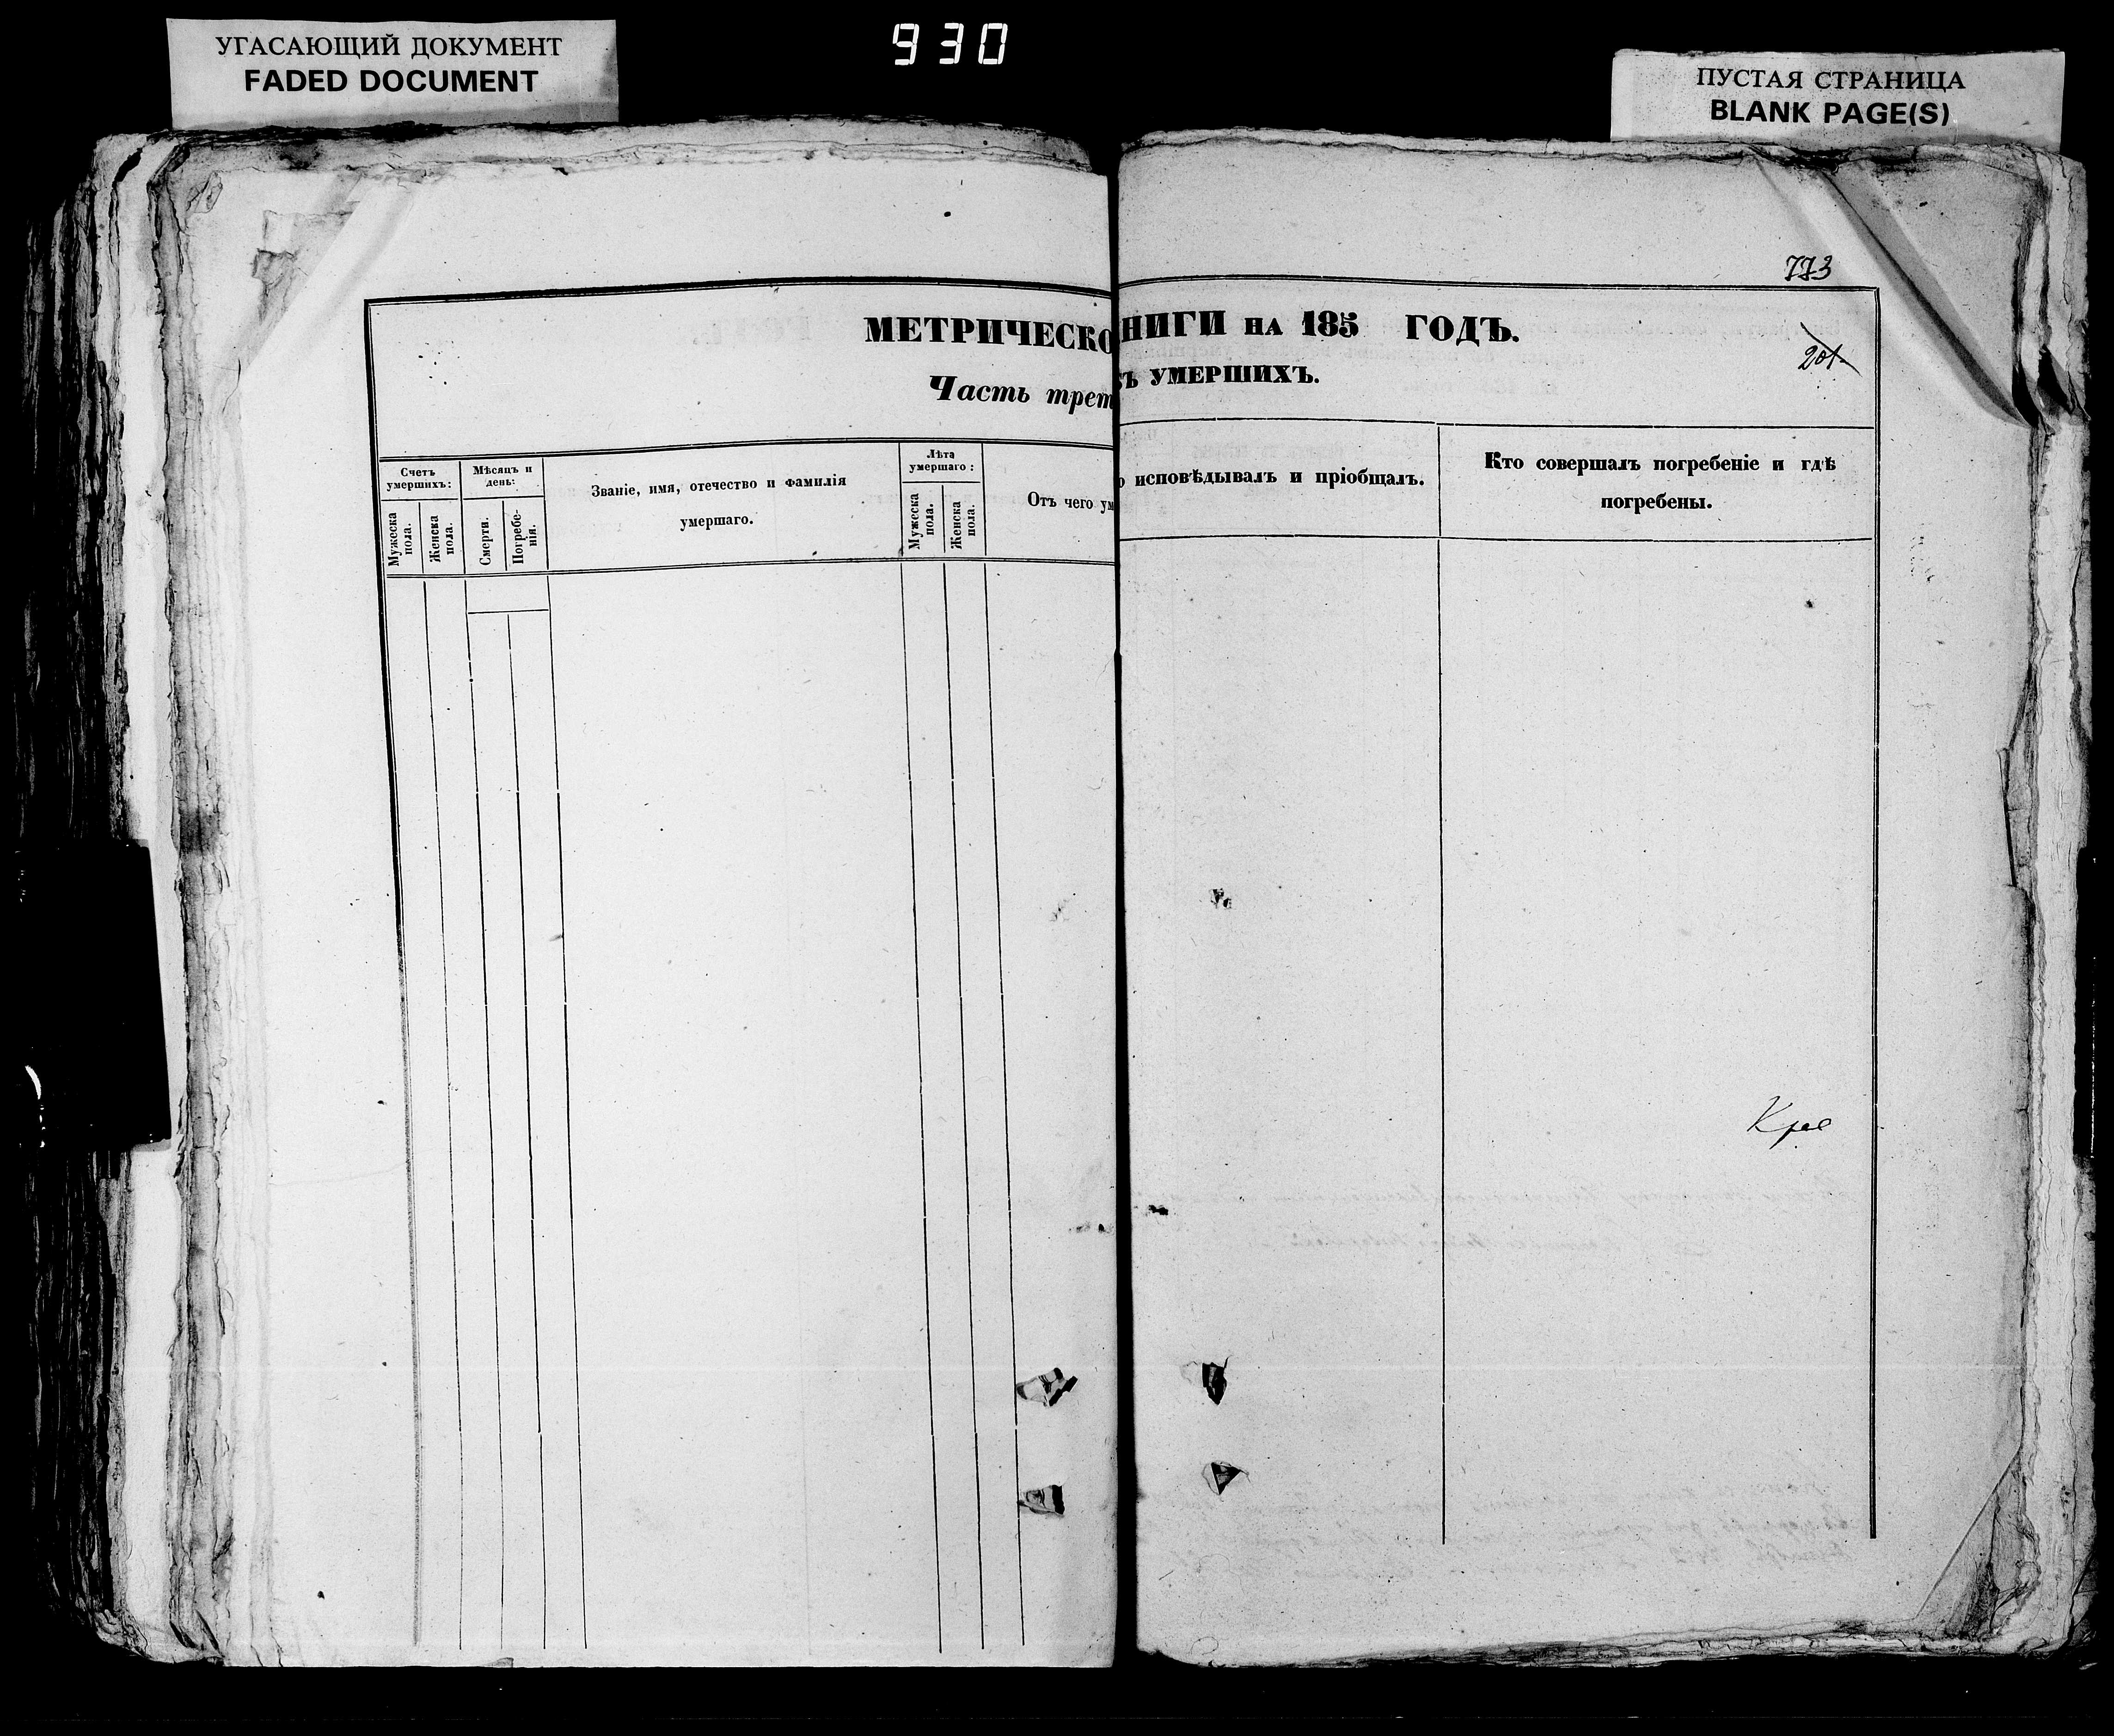 УГАСАЮЩИЙ ДОКУМЕНТ
FADED DOCUMENT
930
ПУСТАЯ СТРАНИЦА
BLANK PAGE(S)
773
МЕТРИЧЕСКО
Часть трет
Счетъ умершихъ:
Мужеска пола.
Женска пола.
Мѣсяцъ и день:
Смерти.
Погребенія.
Званіе, имя, отечество и фамилія
умершаго.
Лѣта умершаго:
Мужеска пола.
Женска пола.
Отъ чего ум
НИГИ НА 185 ГОДЪ.
201
ъ УМЕРШИХЪ.
о исповѣдывалъ и пріобщалъ.
Кто совершалъ погребеніе и гдѣ
погребены.